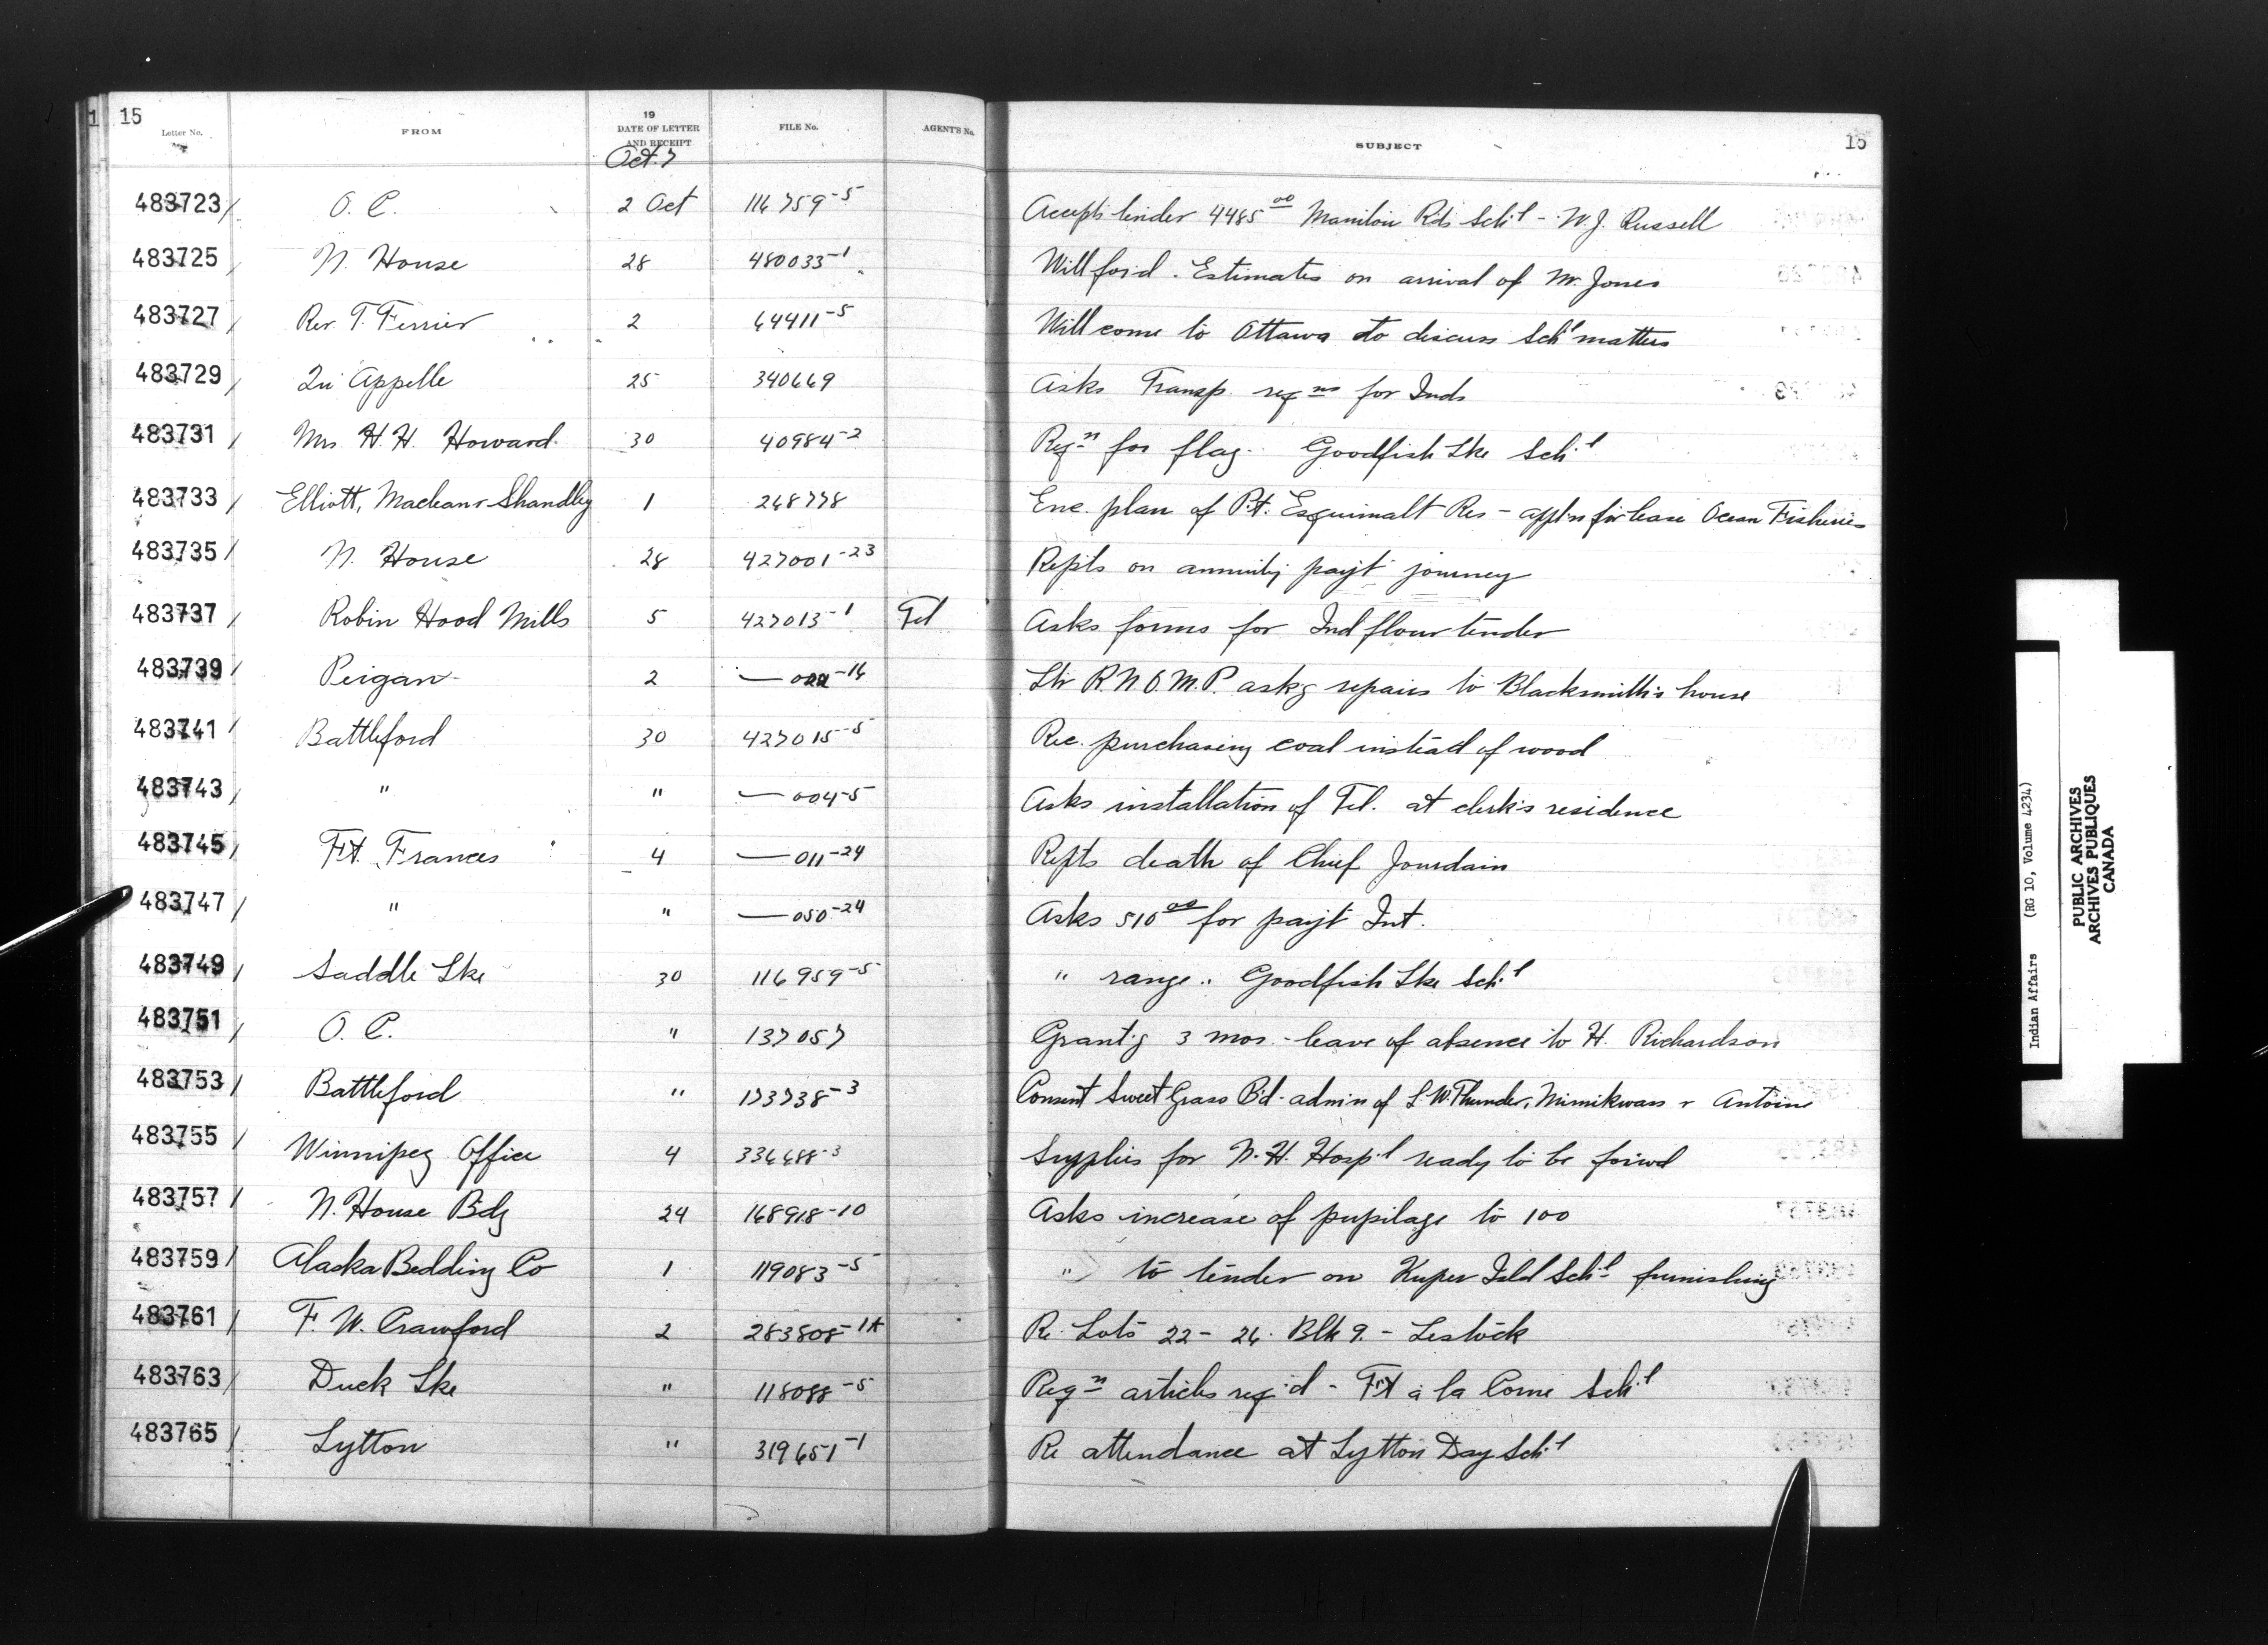 15
Letter No. FROM 19 DATE OF LETTER AND RECEIPT FILE No. AGENT'S No. SUBJECT 15
Oct. 7
483723/ O. C. 2 Oct 116759-5 Accepts tender 4485.00 Manitou Rds Sch'l - W. J. Russell
483725/ N. House 28 480033-1 Will for'd. Estimates on arrival of Mr. Jones
483727/ Rev. T. Ferrier 2 64411-5 Will come to Ottawa to discuss Sch'l matters
483729/ Qu'Appelle 25 340669 Asks Transp. reqns for Inds
483731/ Mrs H. H. Howard 30 40984-2 Reqn for flag. Goodfish Lke Sch'l
483733/ Elliott, Maclean & Shandley 1 268778 Enc. plan of Pt. Esquimalt Res - appl'n for lease Ocean Fisheries
483735/ N. House 28 427001-23 Rep'ts on annuity pay't journey
483737/ Robin Hood Mills 5 427013-1 Tel Asks forms for Ind flour tender
483739/ Peigan 2 — -14 Ltr R.N.W.M.P. ask'g repairs to Blacksmith's house
483741/ Battleford 30 427015-5 Rec. purchasing coal instead of wood
483743/ " " —004-5 Asks installation of Tel. at clerk's residence
483745/ Ft. Frances 4 —011-24 Rep'ts death of Chief Jourdain
483747/ " " —050-24 Asks 510.00 for pay't Int.
483749/ Saddle Lke 30 116959-5 " range " Goodfish Lke Sch'l
483751/ O. C. " 137057 Grant'g 3 mos. leave of absence to H. Richardson
483753/ Battleford " 173738-3 Consent Sweet Grass B'd - admin of L. W. Thunder, Mimikwas & Antoine
483755/ Winnipeg Office 4 336688-3 Supplies for N. H. Hosp'l ready to be forwd
483757/ N. House Bdg 24 168918-10 Asks increase of pupilage to 100
483759/ Alaska Bedding Co 1 119083-5 " to tender on Kuper Isld Sch'l furnishing
483761/ F. W. Crawford 2 283808-1A Re. Lots 22 - 26. Blk 9. - Lestock
483763/ Duck Lke " 118088-5 Reqn articles req'd - Ft à la Corne Sch'l
483765/ Lytton " 319651-1 Re attendance at Lytton Day Sch'l
Indian Affairs (RG 10, Volume 4234)
PUBLIC ARCHIVES
ARCHIVES PUBLIQUES
CANADA